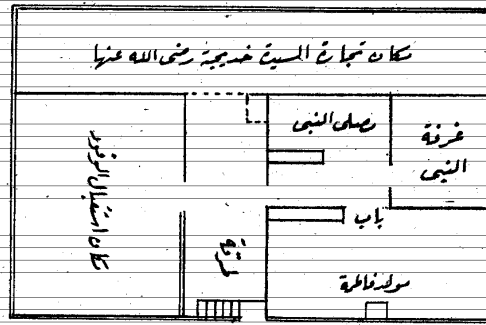 مكان تجارة السيدة خديجة رضى الله عنها
مصلى النبى
غرفة
النبى
مكان استقبال الوفود
باب
طرقة
مولد فاطمة